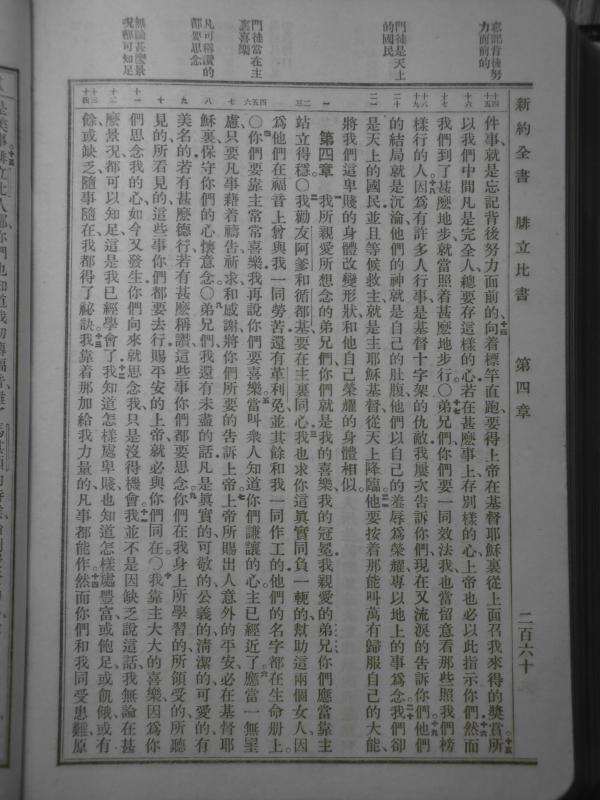 新約全書 腓立比書 第四章 二百六十
忘記背後努
力面前的
門徒是天上
的國民
門徒當在主
裏喜樂
凡可稱讚的
都要思念
無論甚麼景
况都可知足
件事就是忘記背後努力面前的向着標竿直跑要得上帝在基督耶穌裏從上面召我來得的獎賞所
以我們中間凡是完全人總要存這樣的心若在甚麼事上存別樣的心上帝也必以此指示你們然而
我們到了甚麼地步就當照着甚麼地步行〇弟兄們你們要一同效法我也當留意看那些照我們榜
樣行的人因爲有許多人行事是基督十字架的仇敵我屢次告訴你們現在又流淚的告訴你們他們
的結局就是沉淪他們的神就是自己的肚腹他們以自己的羞辱爲榮耀專以地上的事爲念我們卻
是天上的國民並且等候救主就是主耶穌基督從天上降臨他要按着那能叫萬有歸服自己的大能
將我們這卑賤的身體改變形狀和他自己榮耀的身體相似
第四章 我所親愛所想念的弟兄們你們就是我的喜樂我的冠冕我親愛的弟兄你們應當靠主
站立得穩〇我勸友阿爹和循都基要在主裏同心我也求你這眞實同負一軛的幫助這兩個女人因
爲他們在福音上曾與我一同勞苦還有革利免並其餘和我一同作工的他們的名字都在生命册上
〇你們要靠主常常喜樂我再說你們要喜樂當叫衆人知道你們謙讓的心主已經近了應當一無罣
慮只要凡事藉着禱告祈求和感謝將你們所要的告訴上帝上帝所賜出人意外的平安必在基督耶
穌裏保守你們的心懷意念〇弟兄們我還有未盡的話凡是眞實的可敬的公義的清潔的可愛的有
美名的若有甚麼德行若有甚麼稱讚這些事你們都要思念你們在我身上所學習的所領受的所聽
見的所看見的這些事你們都要去行賜平安的上帝就必與你們同在〇我靠主大大的喜樂因爲你
們思念我的心如今又發生你們向來就思念我只是沒得機會我並不是因缺乏說這話我無論在甚
麼景况都可以知足這是我已經學會了我知道怎樣處卑賤也知道怎樣處豐富或飽足或飢餓或有
餘或缺乏隨事隨在我都得了秘訣我靠着那加給我力量的凡事都能作然而你們和我同受患難原